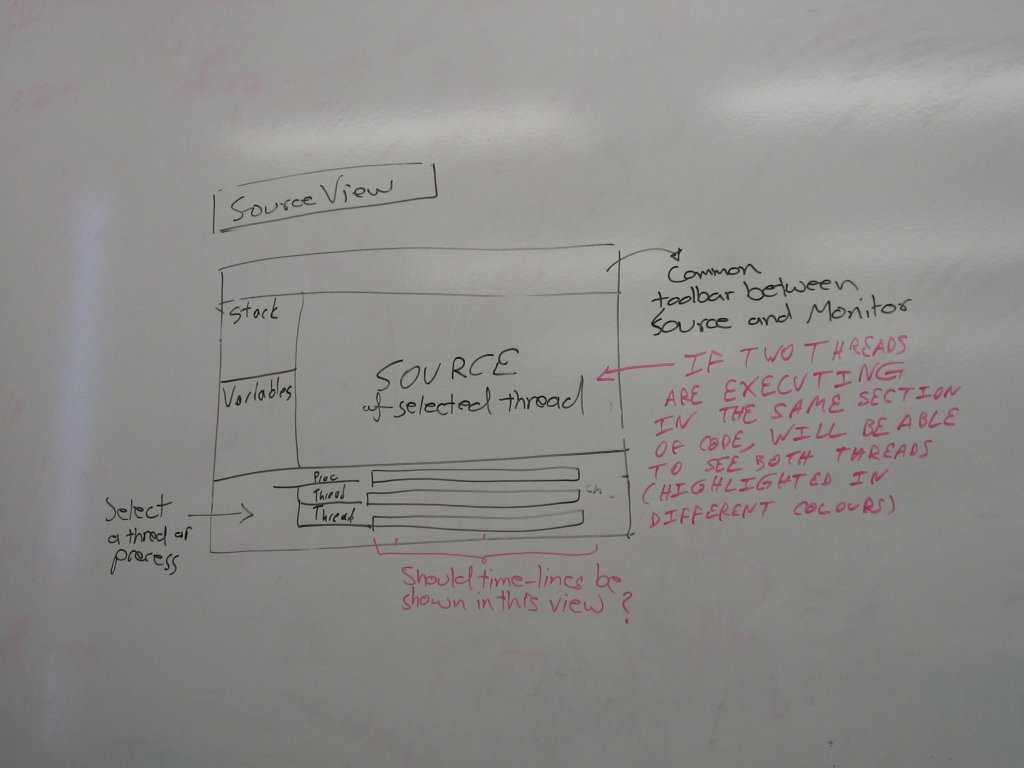 Source View
Common
toolbar between
Source and Monitor
Stack
Variables
SOURCE
of selected thread
IF TWO THREADS
ARE EXECUTING
IN THE SAME SECTION
OF CODE, WILL BE ABLE
TO SEE BOTH THREADS
(HIGHLIGHTED IN
DIFFERENT COLOURS)
Proc
Thread
Thread
Select
a thred or
process
Should time-lines be
shown in this view?